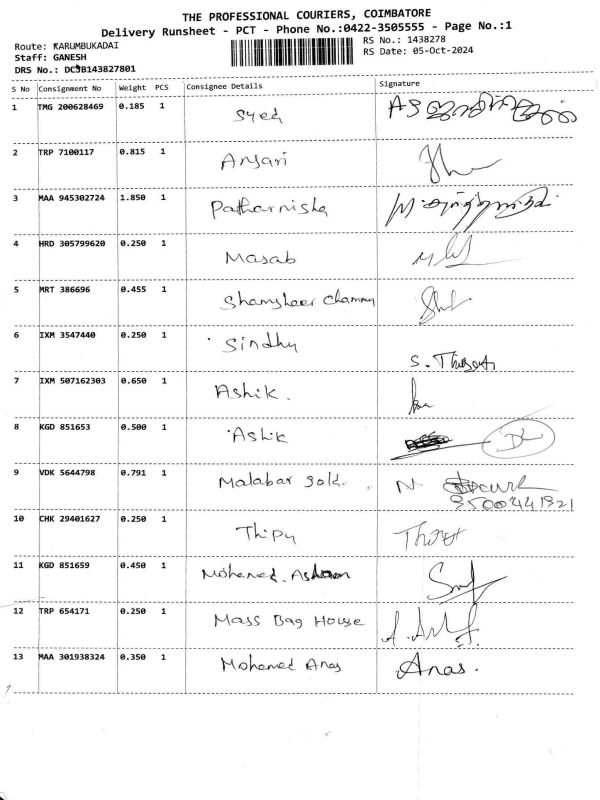 THE PROFESSIONAL COURIERS, COIMBATORE
Delivery Runsheet - PCT - Phone No.:0422-3505555 - Page No.:1
Route: KARUMBUKADAI
RS No.: 1438278
Staff: GANESH
RS Date: 05-Oct-2024
DRS No.: DCJB143827801
S No Consignment No Weight PCS Consignee Details Signature
1 TMG 200628469 0.185 1 Syed
2 TRP 7100117 0.815 1 Ansari
3 MAA 945302724 1.850 1 Patharnisha
4 HRD 305799620 0.250 1 Masab
5 MRT 386696 0.455 1 Shamsheer
6 IXM 3547440 0.250 1 Sindhu
7 IXM 507162303 0.650 1 Ashik.
8 KGD 851653 0.500 1 Ashik
9 VDK 5644798 0.791 1 Malabar gold. N
9500441921
10 CHK 29401627 0.250 1 Thipu
11 KGD 851659 0.450 1 Mohamed.
12 TRP 654171 0.250 1 Mass Bag House
13 MAA 301938324 0.350 1 Mohamed Anas Anas.